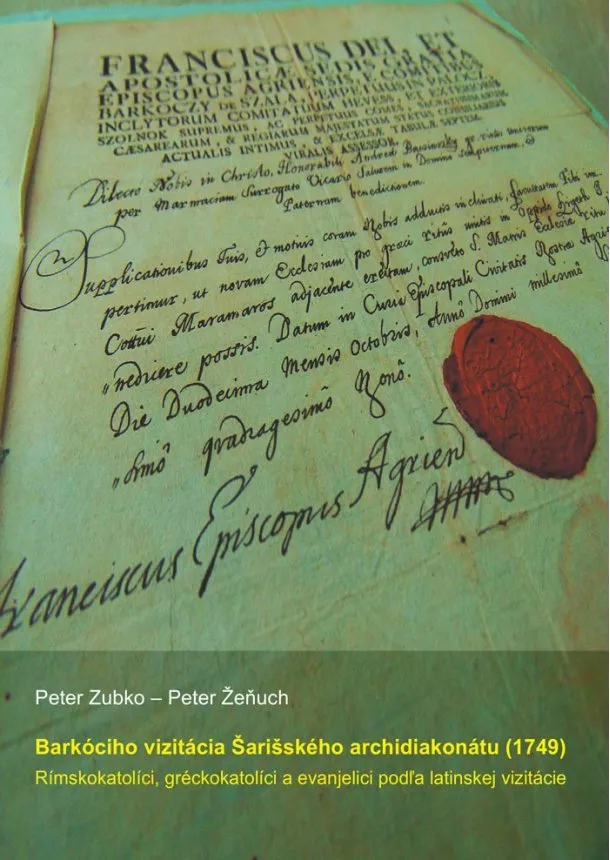 FRANCISCUS DEI, ET
APOSTOLICÆ SEDIS GRATIA
EPISCOPUS AGRIENSIS, E COMITIBUS
BARKOCZY DE SZALA, PERPETUUS IN PALOCZ,
INCLYTORUM COMITATUUM HEVESS, ET EXTERIORIS
SZOLNOK SUPREMUS, AC PERPETUUS COMES, SACRATISSIMARUM
CÆSAREARUM, & REGIARUM MAJESTATUM STATUS CONSILIARIUS
ACTUALIS INTIMUS, & EXCELSÆ TABULÆ SEPTEM-
VIRALIS ASSESSOR.
Dilecto Nobis in Christo, Honorabili Andreæ
per Marmaciam Surrogato Vicario Salutem in Domino sempiternam, &
Paternam benedictionem.
Supplicationibus Tuis, & motivis coram Nobis adductis inclinati, facultatem Tibi im-
pertimur, ut novam Ecclesiam pro græci ritûs unitis in Oppido
Cottui Maramaros adjacente erectam, consveto S. Matris Ecclesiæ ritu
nedicere possis. Datum in Curia Episcopali Civitatis Nostræ
Die Duodecima Mensis Octobris, Annô Domini millesimô
simô quadragesimô Nonô.
Franciscus Episcopus Agrien
Peter Zubko – Peter Žeňuch
Barkóciho vizitácia Šarišského archidiakonátu (1749)
Rímskokatolíci, gréckokatolíci a evanjelici podľa latinskej vizitácie